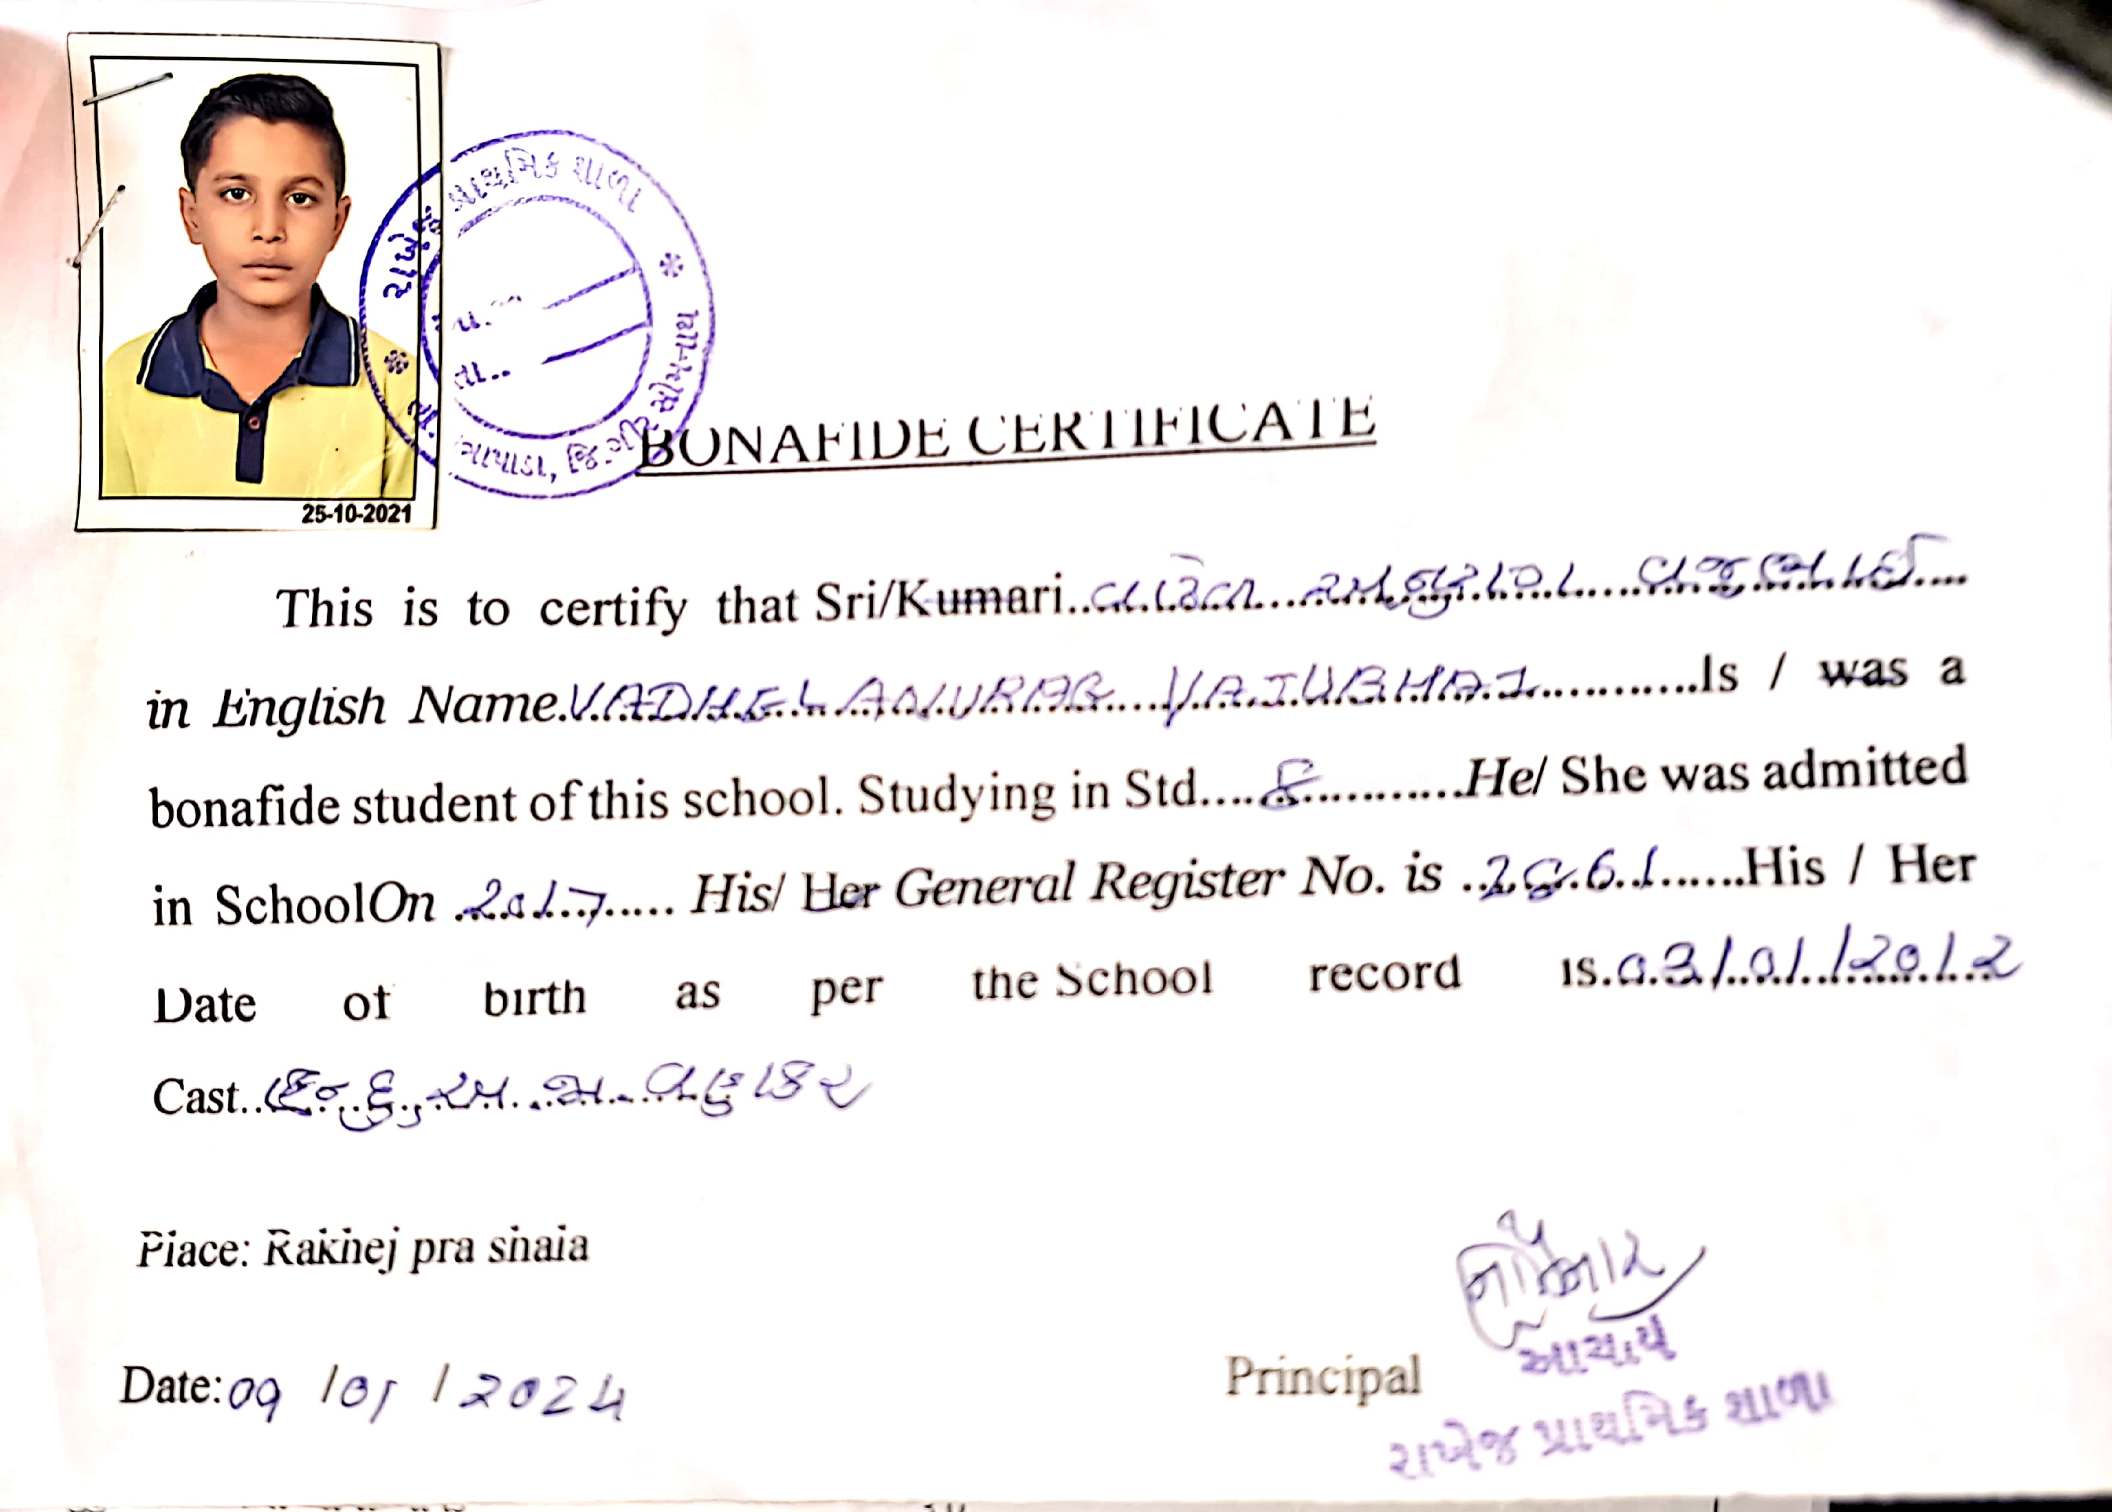 રાખેજ પ્રાથમિક શાળા
તા..
25-10-2021
BONAFIDE CERTIFICATE
This is to certify that Sri/Kumari..વાઢેળ....અનુરાગ.....વજુભાઈ....
in English Name.VADHEL ANURAG....VAJUBHAI............Is / was a
bonafide student of this school. Studying in Std.... ............He/ She was admitted
in SchoolOn ..2017..... His/ Her General Register No. is ..2861......His / Her
Date of birth as per the School record is.03/.01./2012
Cast..હિન્દુ
Place: Rakhej pra shala
Date:09 /01 /2024
Principal
આચાર્ય
રાખેજ પ્રાથમિક શાળા